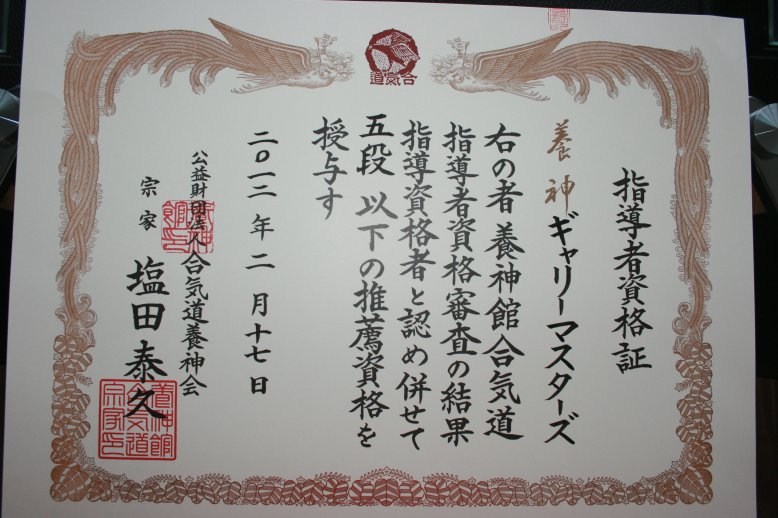 合気道
指導者資格証
養神
ギャリーマスターズ
右の者 養神館合気道
指導者資格審査の結果
指導資格者と認め併せて
五段 以下の推薦資格を
授与す
二〇一二年二月十七日
公益財団法人合気道養神会
宗家 塩田泰久
養神館
合気道
宗家之印